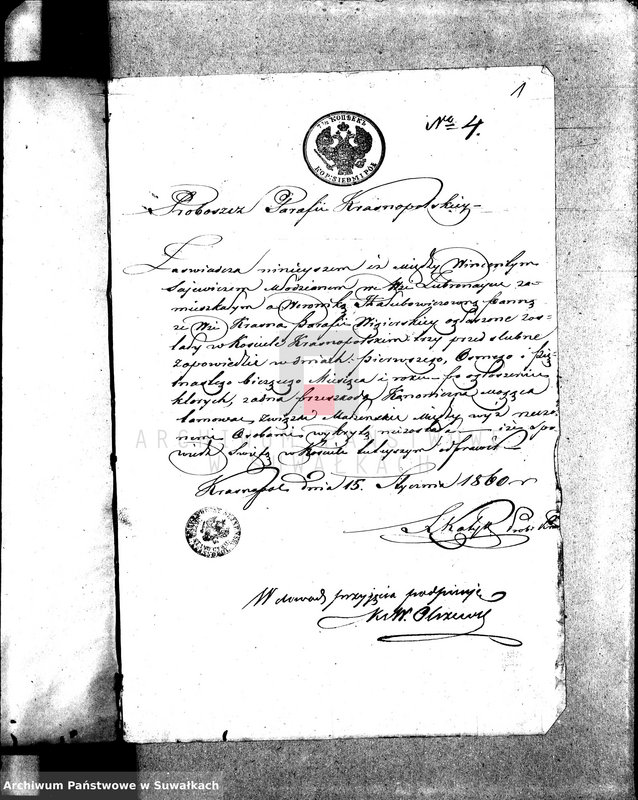 1
No 4.
7½ КОПѢЕКЪ
KOP: SIEDM I PÓŁ
Proboszcz Parafii Krasnopolskiey
Zaświadcza ninieyszem iż między Wincentym
Młodzianem we Wsi za-
mieszkałym a Weroniką Panną
ze Wsi Krasna Parafii Wigierskiey ogłoszone zos-
tały w Kościele Krasnopolskim trzy przed ślubne
zapowiedzie w dniach: pierwszego, Osmego i Pię-
tnastego bieżącego Miesiąca i roku po ogłoszeniu
których, żadna przeszkoda Kanoniczna mogąca
tamować związek Małżeński między wyż mienio-
nemi Osobami wykrytą niezostała iż Spo-
wiedź Świętą w Kościele tuteyszym odprawił
Krasnopol dnia 15. Stycznia 1860 r
W dowód przyjęcia podpisuję
X. W. Olszewski
ARCHIWUM PAŃSTWOWE
W SUWAŁKACH
Archiwum Państwowe w Suwałkach